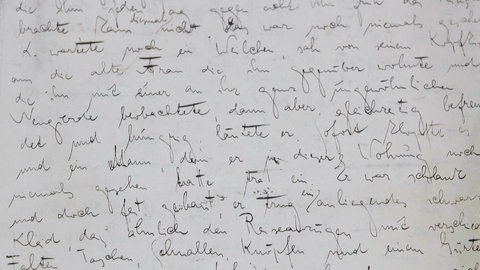 die ihm jeden Tag gegen acht Uhr früh das
brachte kam diesmal nicht. Das war noch niemals gesche
K. wartete noch ein Weilchen, sah von seinem Kopfkis
aus die alte Frau die ihm gegenüber wohnte und
die ihn mit einer an ihr ganz ungewöhnlichen
Neugierde beobachtete, dann aber, gleichzeitig befrem
det und hungrig, läutete er. Sofort klopfte es
und ein Mann, den er in dieser Wohnung noch
niemals gesehen hatte trat ein. Er war schlank
und doch fest gebaut, er trug ein anliegendes schwar
Kleid, das ähnlich den Reiseanzügen mit verschie
Falten, Taschen, Schnallen, Knöpfen und einem Gürte